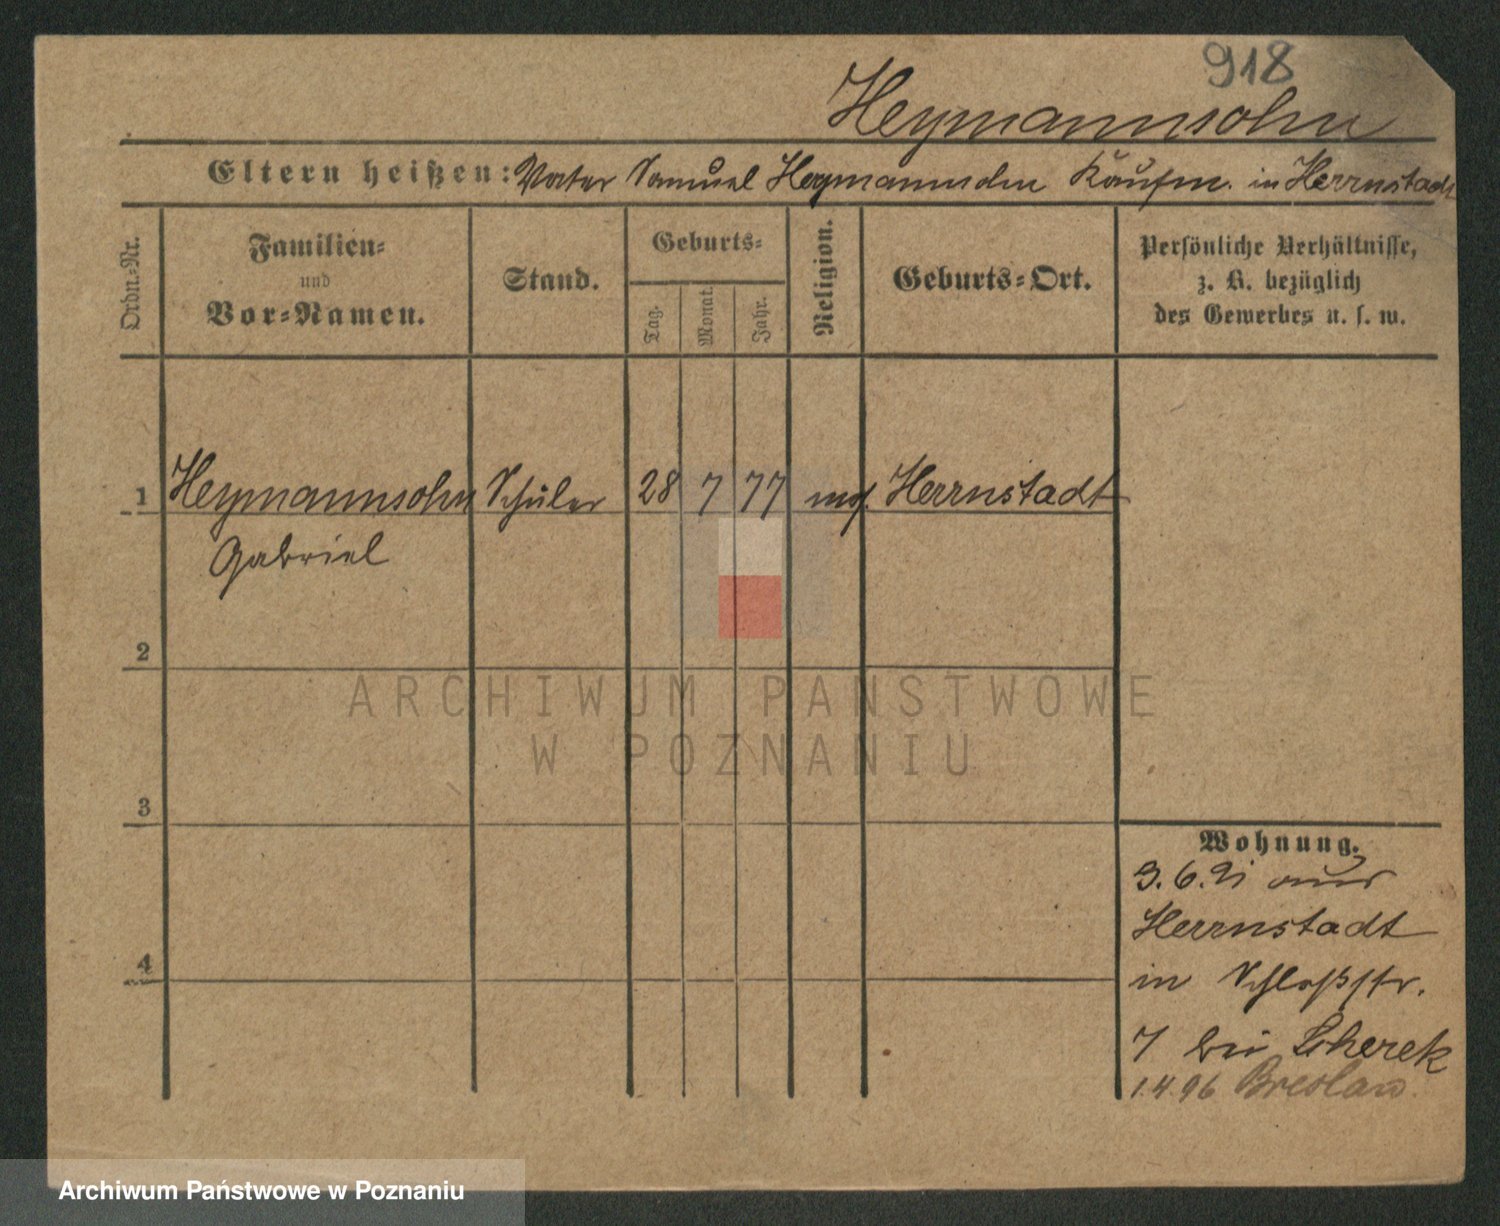 918
Heymannsohn
Eltern heißen: Vater Samuel Heymannsohn Kaufm. in Herrnstadt
Ordn.-Nr.
Familien-
und
Vor-Namen.
Stand.
Geburts-
Tag.
Monat.
Jahr.
Religion.
Geburts-Ort.
Persönliche Verhältnisse,
z. B. bezüglich
des Gewerbes u. s. w.
1 Heymannsohn Schüler 28 7 77 mos. Herrnstadt
Gabriel
2
3
4
ARCHIWUM PAŃSTWOWE
W POZNANIU
Wohnung.
3.6.91 aus
Herrnstadt
in Schloßstr.
7 bei
1.4.96 Breslau.
Archiwum Państwowe w Poznaniu